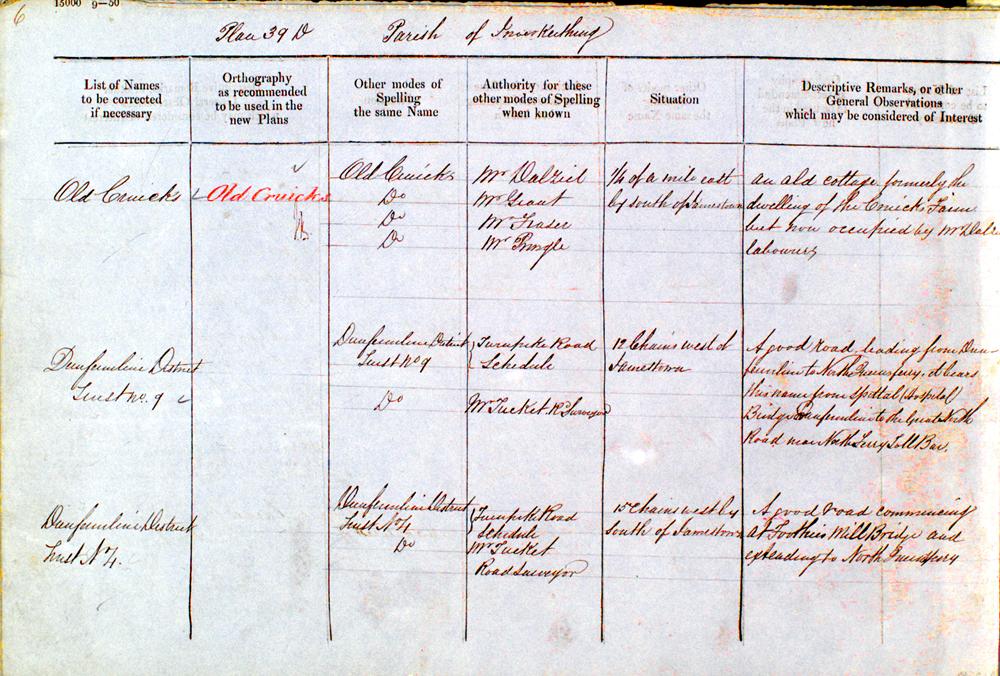 6
15000 9—50
Plan 39 D Parish of Inverkeithing
List of Names
to be corrected
if necessary
Orthography
as recommended
to be used in the
new Plans
Other modes of
Spelling
the same Name
Authority for these
other modes of Spelling
when known
Situation
Descriptive Remarks, or other
General Observations
which may be considered of Interest
Old Cruicks
Old Cruicks
Old Cruicks
Do
Do
Do
Mr Dalziel
Mr Grant
Mr Fraser
Mr Pringle
1/4 of a mile east
by south of Jamestown
an old cottage formerly the
dwelling of the Cruicks Farm
but now occupied by Mr Dalz
labourers
Dunfermline District
Trust No. 9
Dunfermline District
Trust No 9
Do
Turnpike Road
Schedule
Mr Tucket Rd Surveyor
12 Chains west of
Jamestown
A good road, leading from Dun
fermline to North Queensferry, it bears
this name from Spittal (Hospital)
Bridge Dunfermline to the Great North
Road near North Ferry Toll Bar.
Dunfermline District
Trust No 4.
Dunfermline District
Trust No 4
Do
Turnpike Road
Schedule
Mr Tucket
Road Surveyor
15 Chains west by
south of Jamestown
A good road commencing
at Foothies Mill Bridge and
extending to North Queensferry